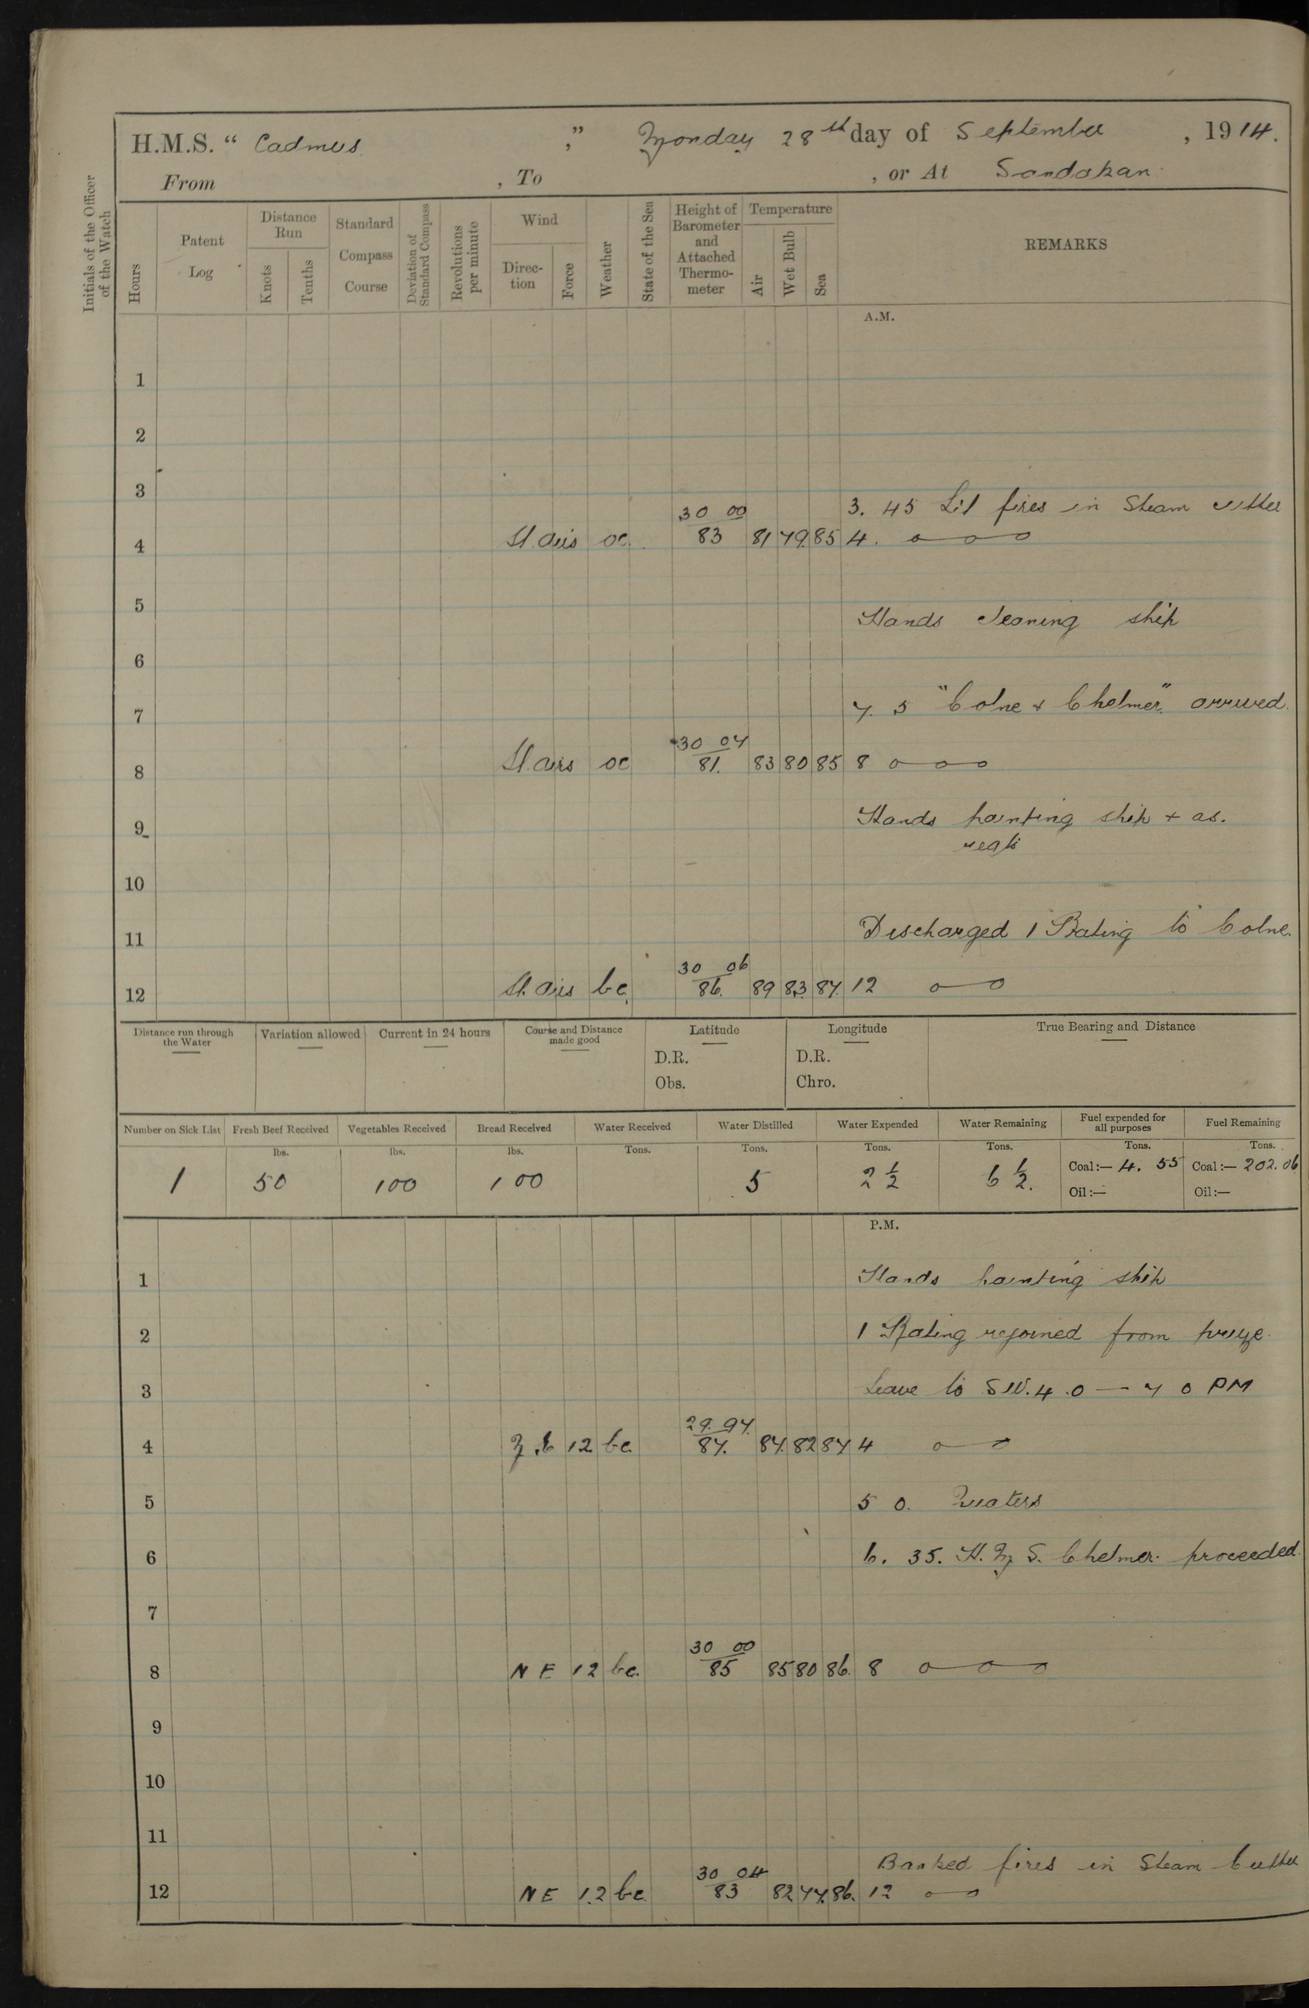 H.M.S. “ Cadmus ” , Monday 28th day of September , 1914.
From , To , or At Sandakan.
Initials of the Officer of the Watch
Hours
Patent Log
Distance Run
Knots
Tenths
Standard Compass Course
Deviation of Standard Compass
Revolutions per minute
Wind
Direc- tion
Force
Weather
State of the Sea
Height of Barometer and Attached Thermo- meter
Temperature
Air
Wet Bulb
Sea
REMARKS
A.M.
1
2
3
3. 45 Lit fires in Steam cutter
4 Lt. airs oc. 30 00 83 81 79 85 4.
5
Hands cleaning ship
6
7 7. 5 "Colne & Chelmer" arrived.
8 Lt. airs oc 30 07 81. 83 80 85 8
9 Hands painting ship & as.
reqte
10
11 Discharged 1 Rating to Colne.
12 Lt. airs bc. 30 06 86. 89 83 87 12
Distance run through the Water
Variation allowed
Current in 24 hours
Course and Distance made good
Latitude
D.R.
Obs.
Longitude
D.R.
Chro.
True Bearing and Distance
Number on Sick List
Fresh Beef Received
Vegetables Received
Bread Received
Water Received
Water Distilled
Water Expended
Water Remaining
Fuel expended for all purposes
Fuel Remaining
lbs. lbs. lbs. Tons. Tons. Tons. Tons. Tons. Tons.
1 50 100 100 5 2 1/2 6 1/2. Coal:— 4. 55 Coal:— 202.06
Oil:— Oil:—
P.M.
1 Hands painting ship
2 1 Rating rejoined from prize.
3 Leave to SW. 4.0 — 7 0 PM
4 N.E 12 bc. 29. 97. 87. 87. 82 87 4
5 5 0. Quaters
6 6. 35. H.M.S. Chelmer. proceeded.
7
8 N E 12 bc. 30 00 85 85 80 86. 8
9
10
11
Banked fires in Steam Cutter
12 N E 1.2 bc 30 04 83 82 77. 86. 12